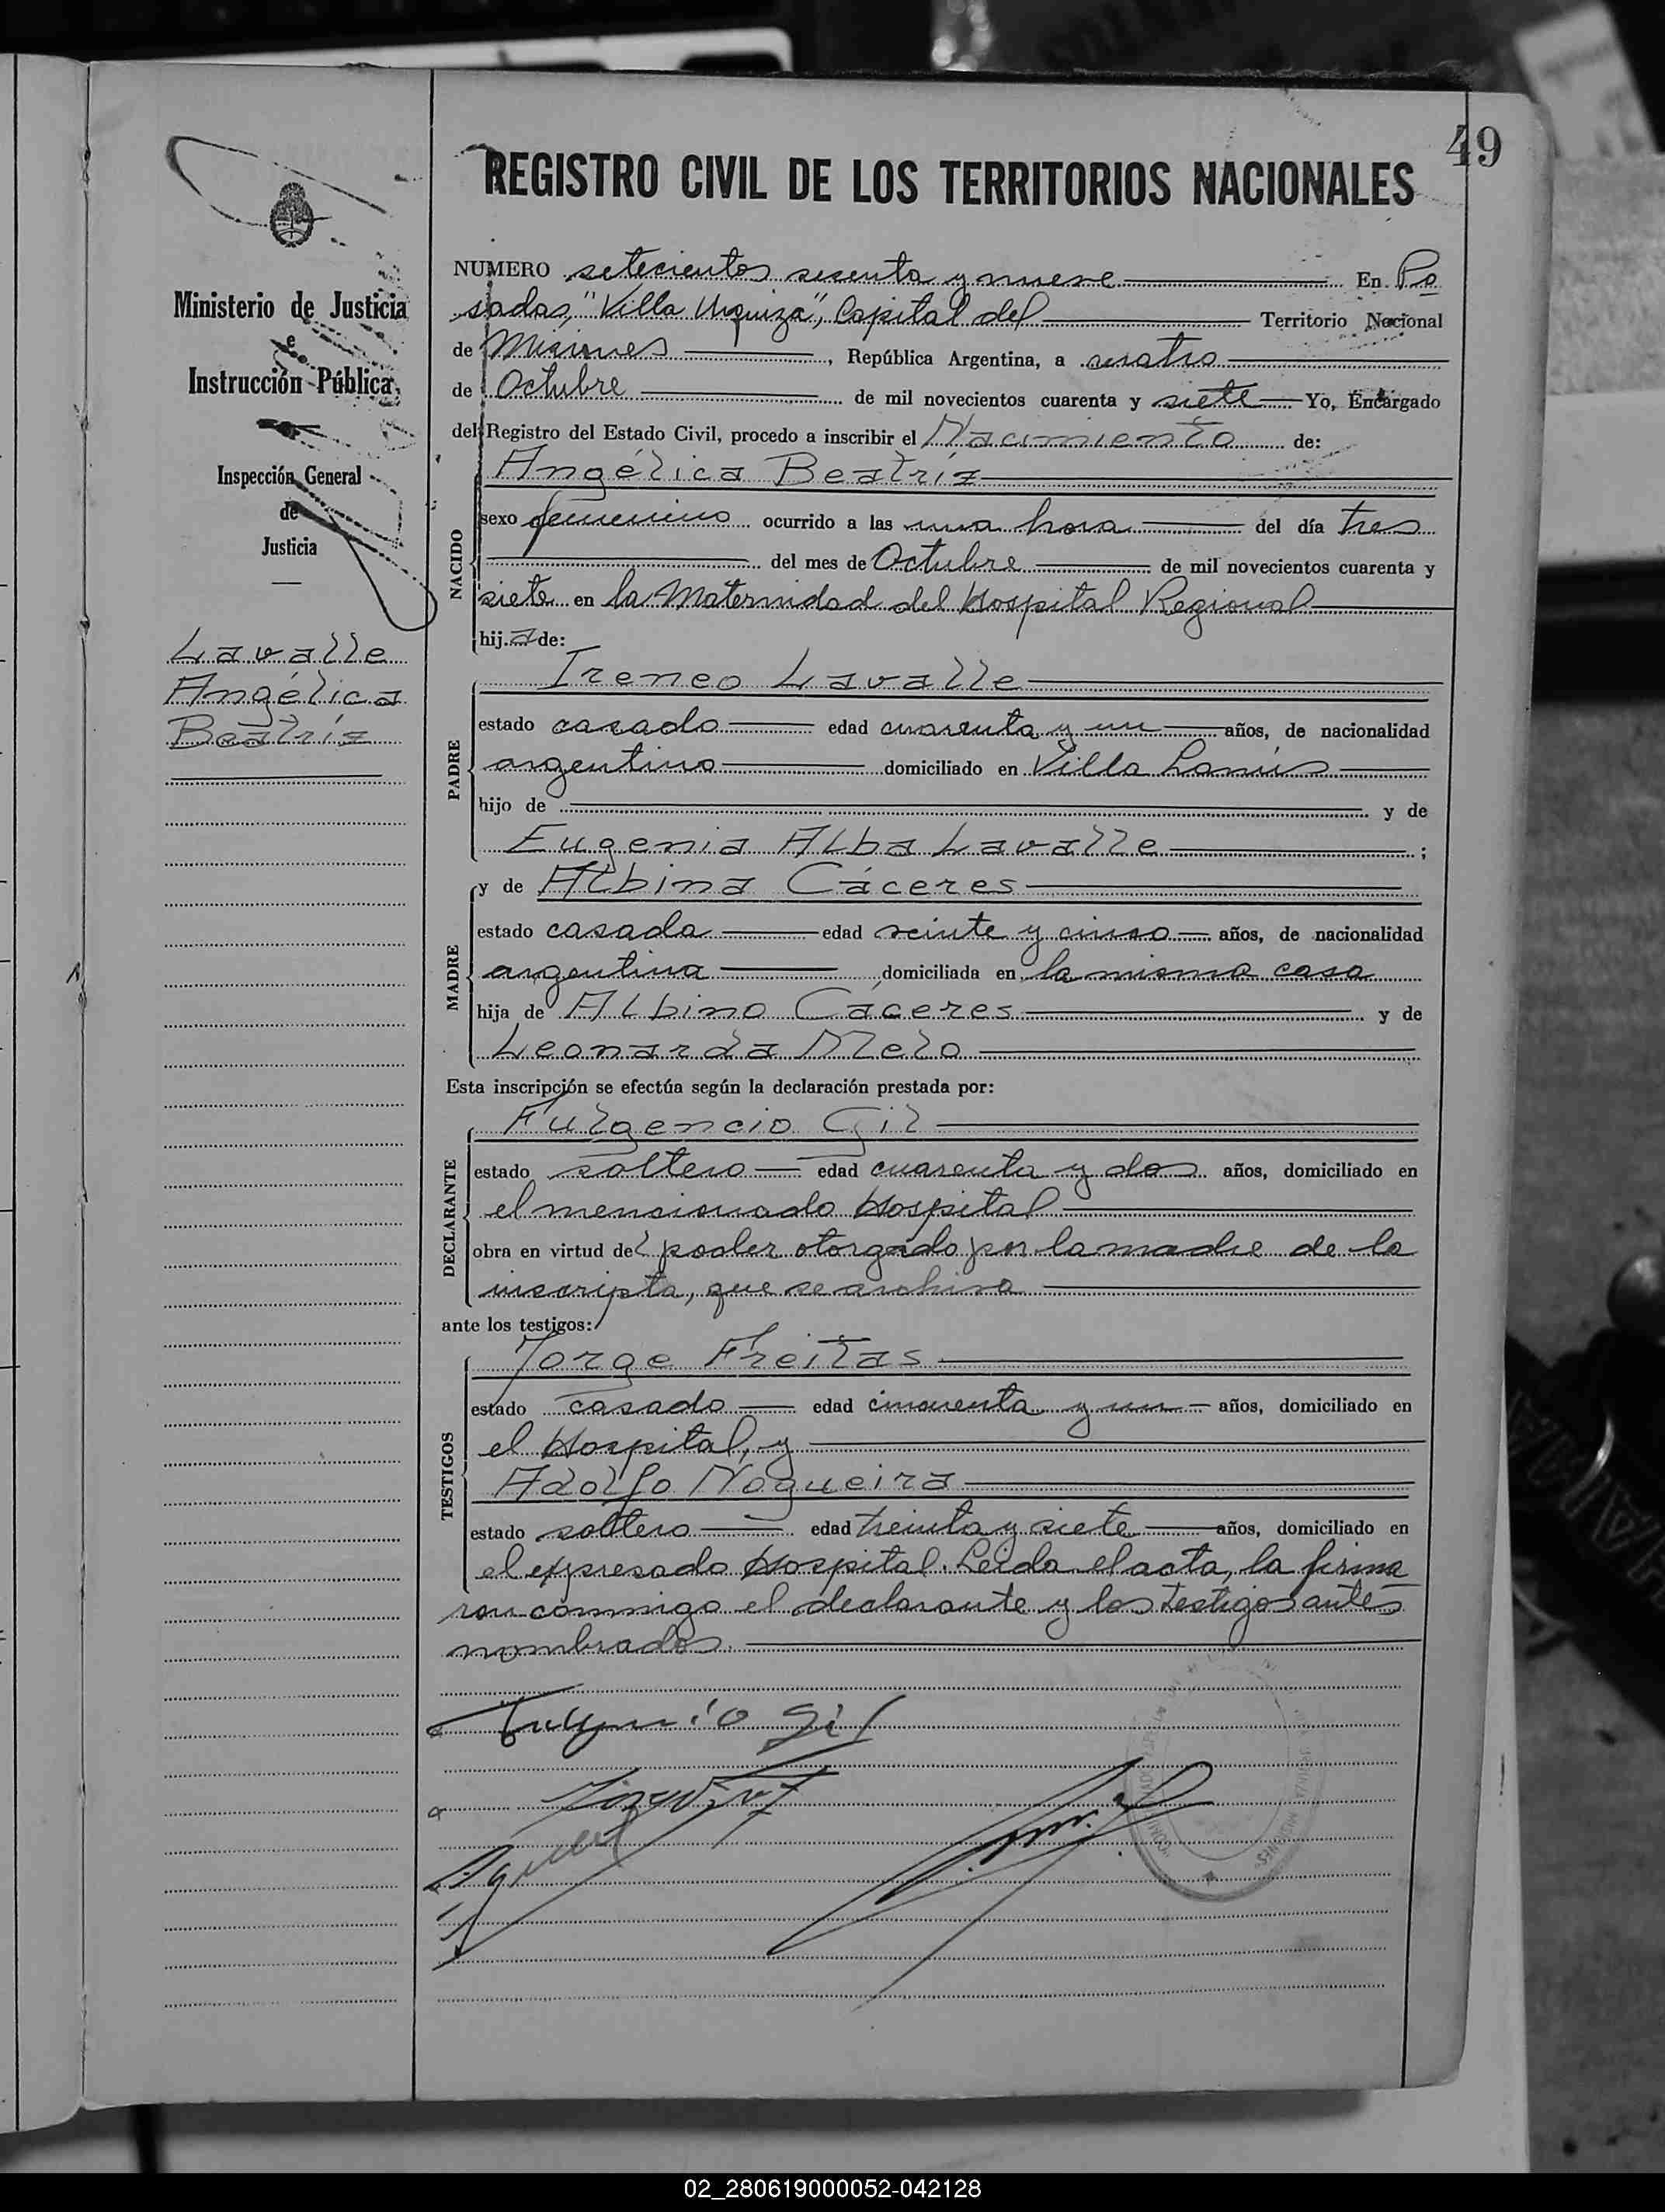 49
REGISTRO CIVIL DE LOS TERRITORIOS NACIONALES
Ministerio de Justicia
e
Instrucción Pública
Inspección General
de
Justicia
Lavalle
Angélica
Beatríz
NUMERO setecientos sesenta y nueve En Po
sadas, "Villa Urquiza", Capital del Territorio Nacional
de Misiones, República Argentina, a cuatro
de Octubre de mil novecientos cuarenta y siete Yo, Encargado
del Registro del Estado Civil, procedo a inscribir el Nacimiento de:
NACIDO
Angélica Beatríz
sexo femenino ocurrido a las una hora del día tres
del mes de Octubre de mil novecientos cuarenta y
siete en la Maternidad del Hospital Regional
hij a de:
PADRE
Ireneo Lavalle
estado casado edad cuarenta y un años, de nacionalidad
argentino domiciliado en Villa Lanús
hijo de y de
Eugenia Alba Lavalle ;
MADRE
y de Albina Cáceres
estado casada edad veinte y cinco años, de nacionalidad
argentina domiciliada en la misma casa
hija de Albino Cáceres y de
Leonarda Melo
Esta inscripción se efectúa según la declaración prestada por:
DECLARANTE
Fulgencio Gil
estado soltero edad cuarenta y dos años, domiciliado en
el mencionado Hospital
obra en virtud del poder otorgado por la madre de la
inscripta, que se archiva
ante los testigos:
TESTIGOS
Jorge Freitas
estado casado edad cincuenta y un años, domiciliado en
el Hospital, y
Adolfo Nogueira
estado soltero edad treinta y siete años, domiciliado en
el expresado Hospital. Leida el acta, la firma
ron conmigo el declarante y los testigos antes
nombrados.
Fulgencio Gil
02_280619000052-042128